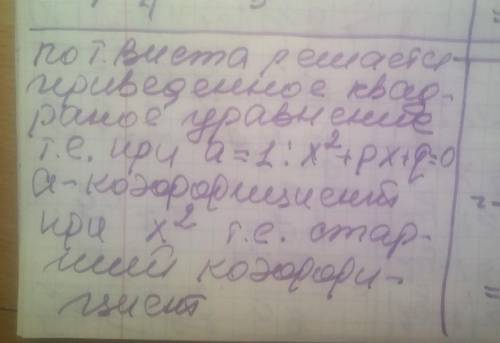 по т. Виета решается
приведенное квад-
раное уравнение
т.е. при a=1: x²+px+q=0
a-коэффициент
при x² т.е. стар-
ший коэффи-
циент